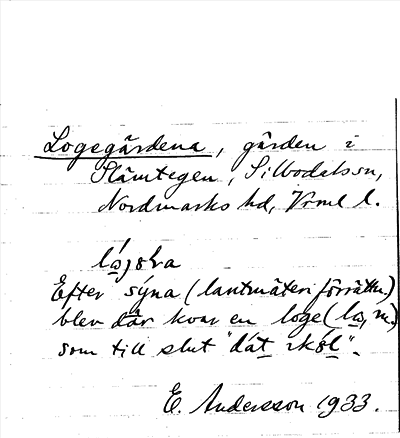 Logegårdena, gården i
Slämtegen, Sillbodalssn,
Nordmarks hd, Vrml l.
Efter syna (lantmäteriförrättn.)
blev där kvar en loge (lω, m.)
som till slut "dåt skōl".
E. Andersson 1933.